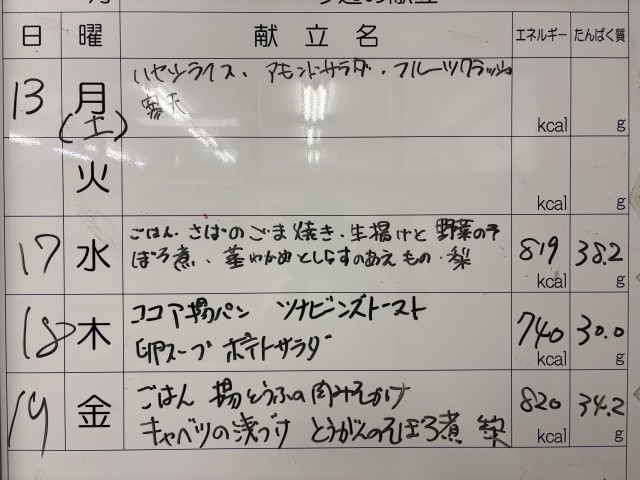 日 曜 献立名 エネルギー たんぱく質
13 月 ハヤシライス、アーモンドサラダ・フルーツクラッシュ
(土) 寒天 kcal g
火 kcal g
17 水 ごはん・さばのごま焼き・生揚げと野菜のそ 819 38.2
ぼろ煮、茎わかめとしらすのあえもの・梨 kcal g
18 木 ココア揚パン ツナビーンズトースト 740 30.0
卵スープ ポテトサラダ kcal g
19 金 ごはん 揚とうふの肉みそかけ 820 34.2
キャベツの浅づけ とうがんのそぼろ煮 梨 kcal g